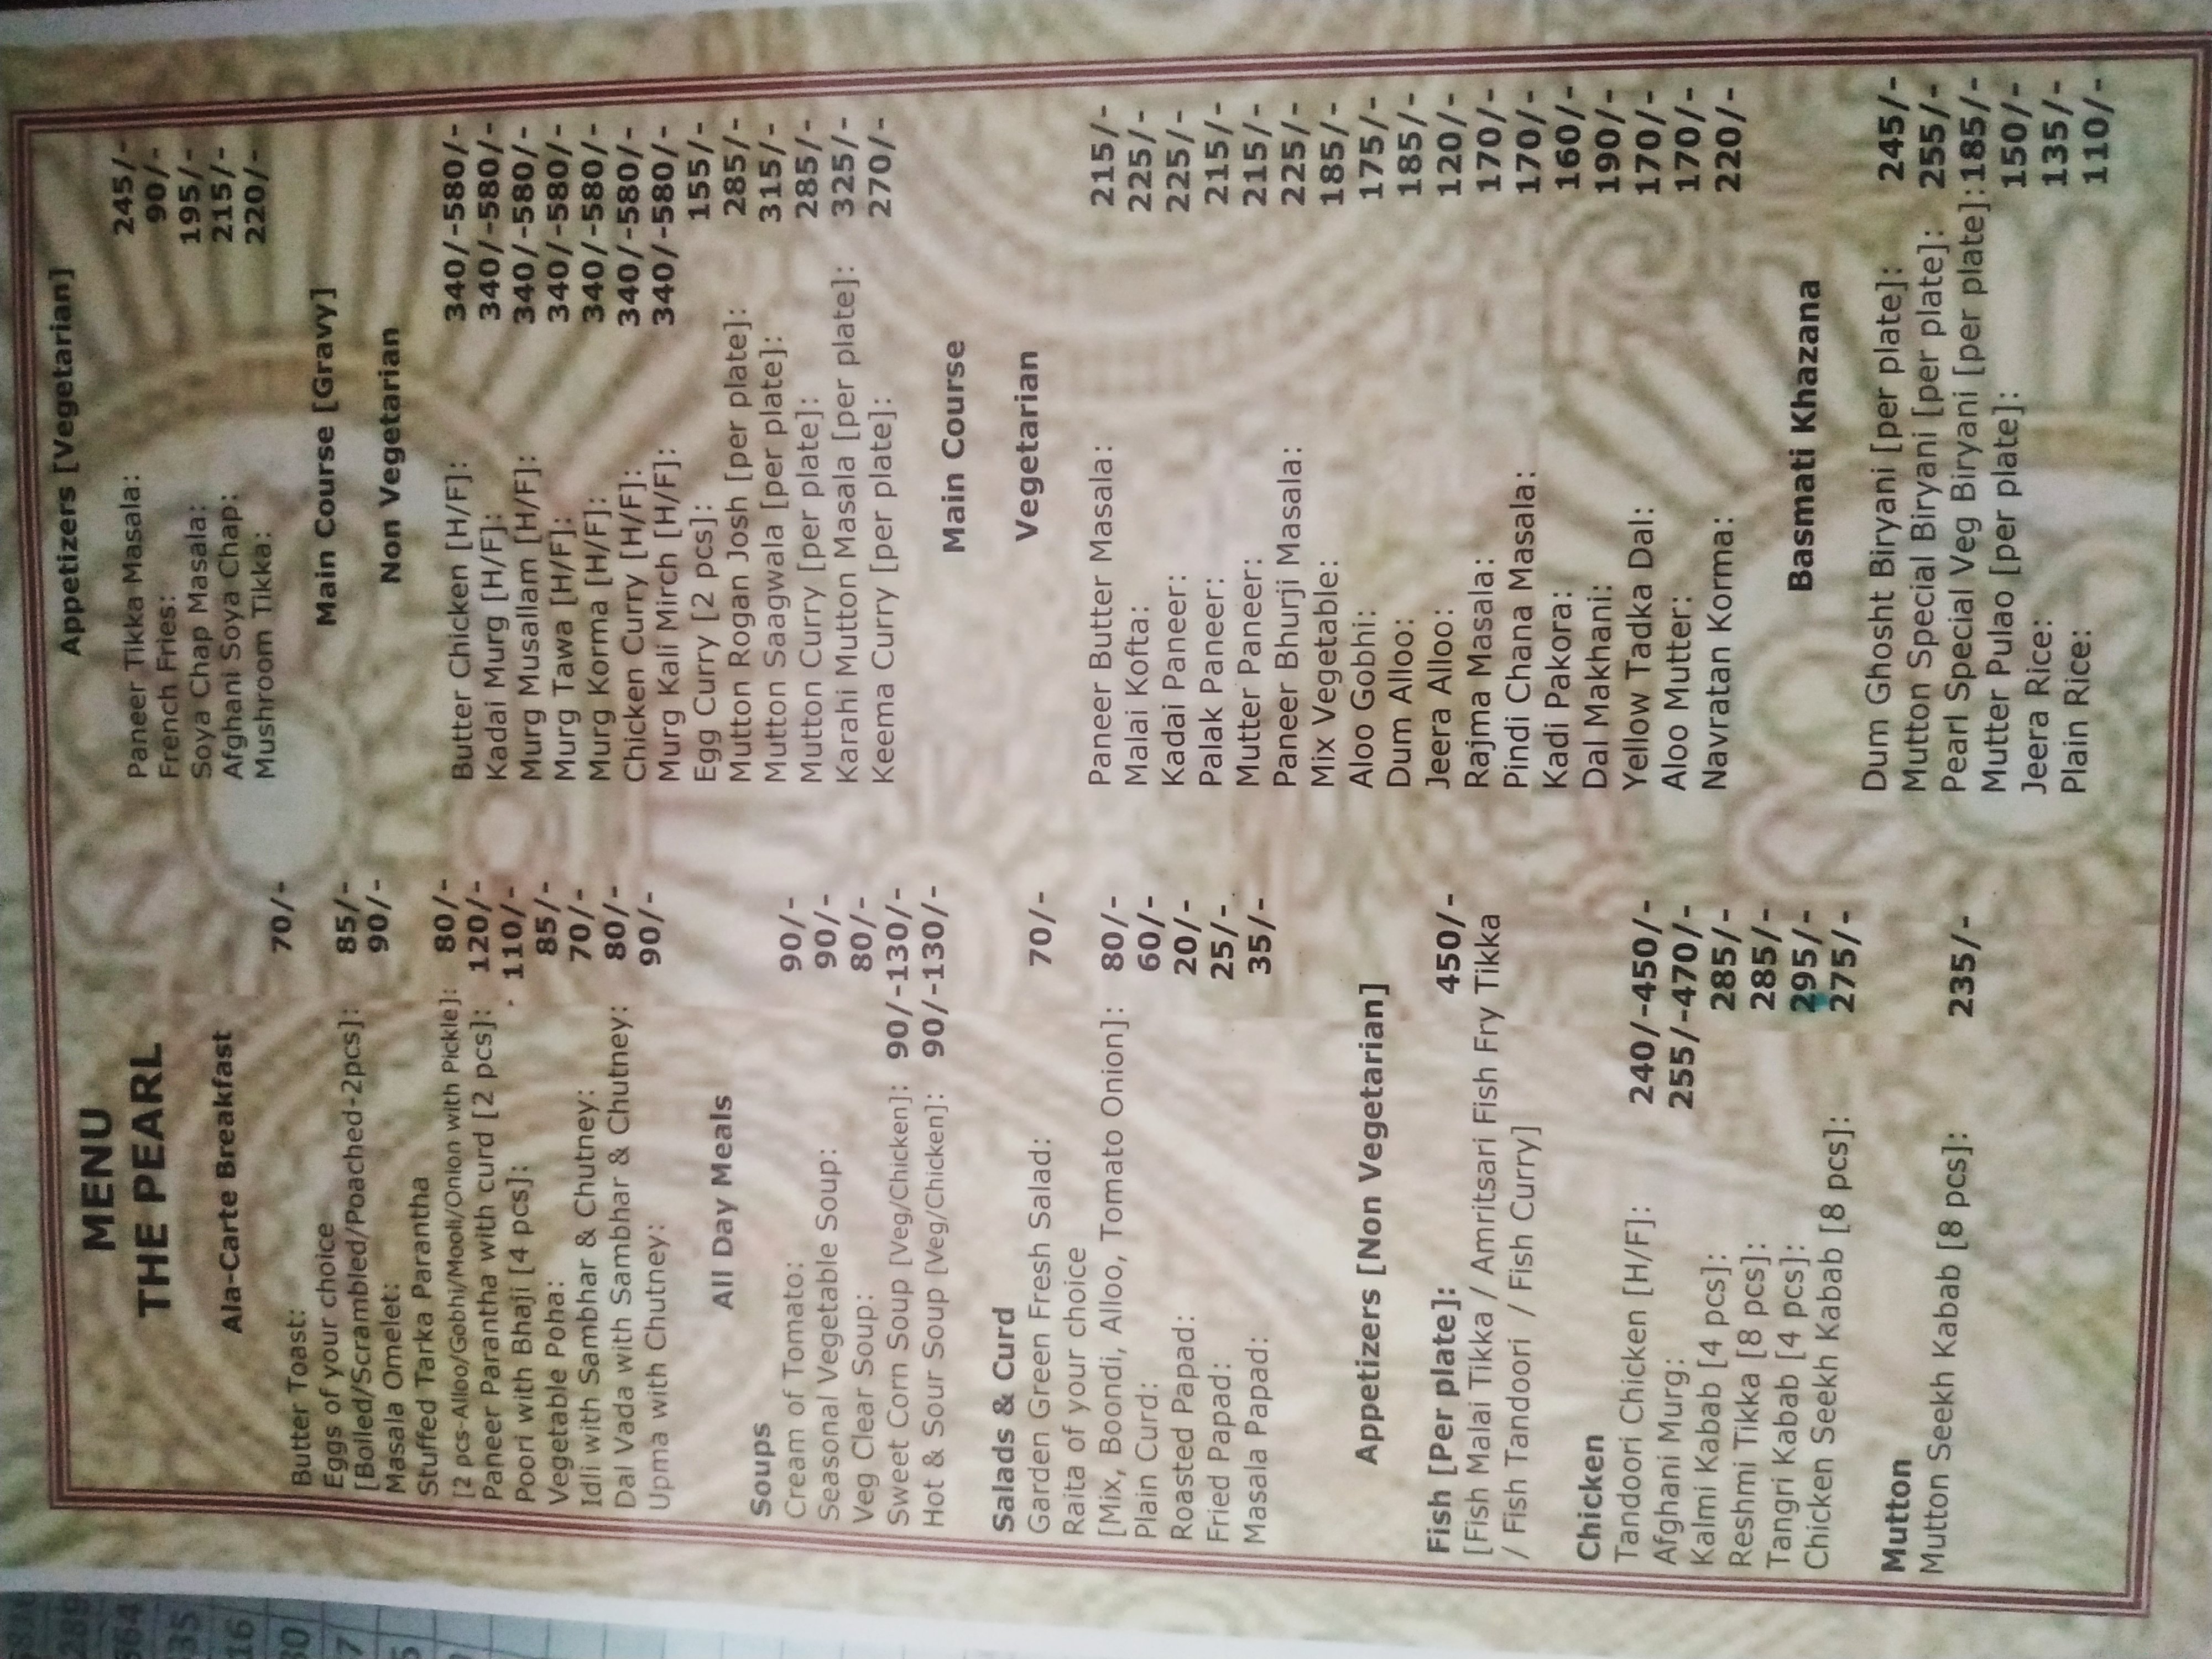 MENU
THE PEARL
Ala-Carte Breakfast
Butter Toast: 70/-
Eggs of your choice
[Boiled/Scrambled/Poached-2pcs]: 85/-
Masala Omelet: 90/-
Stuffed Tarka Parantha
[2 pcs-Alloo/Gobhi/Mooli/Onion with Pickle]: 80/-
Paneer Parantha with curd [2 pcs]: 120/-
Poori with Bhaji [4 pcs]: 110/-
Vegetable Poha: 85/-
Idli with Sambhar & Chutney: 70/-
Dal Vada with Sambhar & Chutney: 80/-
Upma with Chutney: 90/-
All Day Meals
Soups
Cream of Tomato: 90/-
Seasonal Vegetable Soup: 90/-
Veg Clear Soup: 80/-
Sweet Corn Soup [Veg/Chicken]: 90/-130/-
Hot & Sour Soup [Veg/Chicken]: 90/-130/-
Salads & Curd
Garden Green Fresh Salad: 70/-
Raita of your choice
[Mix, Boondi, Alloo, Tomato Onion]: 80/-
Plain Curd: 60/-
Roasted Papad: 20/-
Fried Papad: 25/-
Masala Papad: 35/-
Appetizers [Non Vegetarian]
Fish [Per plate]: 450/-
[Fish Malai Tikka / Amritsari Fish Fry Tikka
/ Fish Tandoori / Fish Curry]
Chicken
Tandoori Chicken [H/F]: 240/-450/-
Afghani Murg: 255/-470/-
Kalmi Kabab [4 pcs]: 285/-
Reshmi Tikka [8 pcs]: 285/-
Tangri Kabab [4 pcs]: 295/-
Chicken Seekh Kabab [8 pcs]: 275/-
Mutton
Mutton Seekh Kabab [8 pcs]: 235/-
Appetizers [Vegetarian]
Paneer Tikka Masala: 245/-
French Fries: 90/-
Soya Chap Masala: 195/-
Afghani Soya Chap: 215/-
Mushroom Tikka: 220/-
Main Course [Gravy]
Non Vegetarian
Butter Chicken [H/F]: 340/-580/-
Kadai Murg [H/F]: 340/-580/-
Murg Musallam [H/F]: 340/-580/-
Murg Tawa [H/F]: 340/-580/-
Murg Korma [H/F]: 340/-580/-
Chicken Curry [H/F]: 340/-580/-
Murg Kali Mirch [H/F]: 340/-580/-
Egg Curry [2 pcs]: 155/-
Mutton Rogan Josh [per plate]: 285/-
Mutton Saagwala [per plate]: 315/-
Mutton Curry [per plate]: 285/-
Karahi Mutton Masala [per plate]: 325/-
Keema Curry [per plate]: 270/-
Main Course
Vegetarian
Paneer Butter Masala: 215/-
Malai Kofta: 225/-
Kadai Paneer: 225/-
Palak Paneer: 215/-
Mutter Paneer: 215/-
Paneer Bhurji Masala: 225/-
Mix Vegetable: 185/-
Aloo Gobhi: 175/-
Dum Alloo: 185/-
Jeera Alloo: 120/-
Rajma Masala: 170/-
Pindi Chana Masala: 170/-
Kadi Pakora: 160/-
Dal Makhani: 190/-
Yellow Tadka Dal: 170/-
Aloo Mutter: 170/-
Navratan Korma: 220/-
Basmati Khazana
Dum Ghosht Biryani [per plate]: 245/-
Mutton Special Biryani [per plate]: 255/-
Pearl Special Veg Biryani [per plate]: 185/-
Mutter Pulao [per plate]: 150/-
Jeera Rice: 135/-
Plain Rice: 110/-